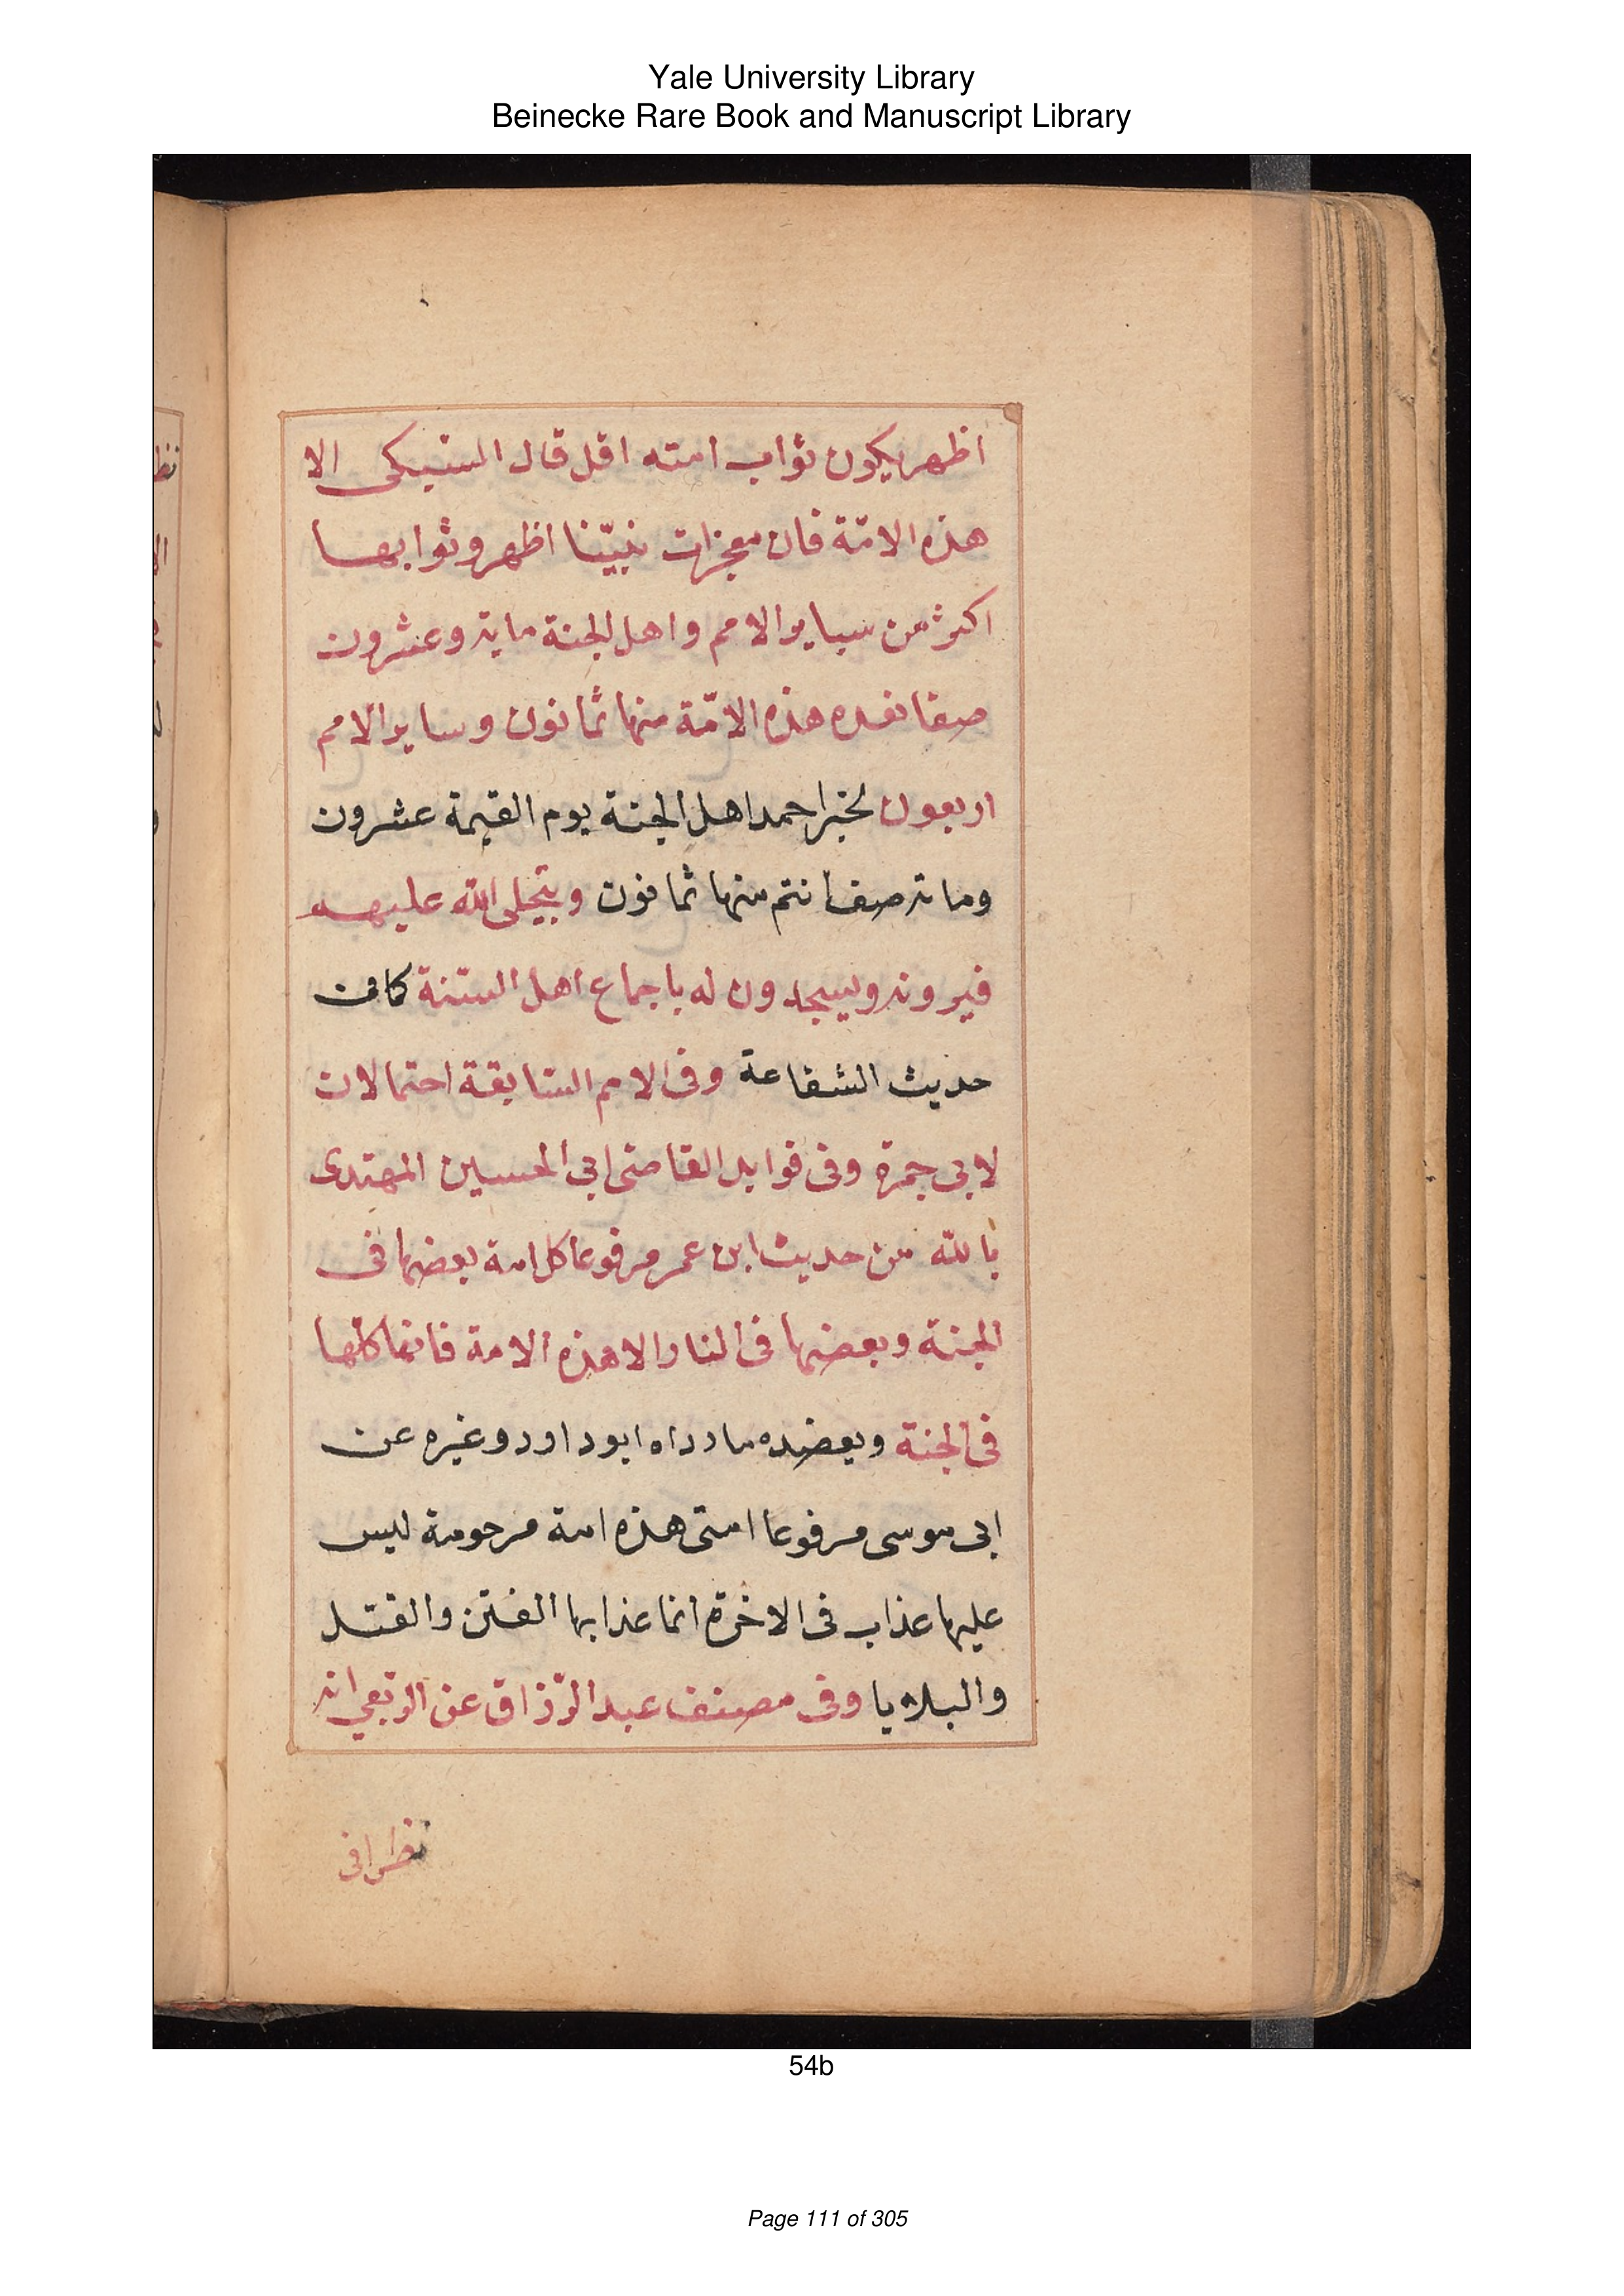 Yale University Library
Beinecke Rare Book and Manuscript Library
اظهر يكون ثواب امته اقل قال السّبكى الا
هذه الامّة فان معجزات نبيّنا اظهر وثوابها
اكثر من ساير الامم واهل الجنة ماية وعشرون
صفا هذه الامّة منها ثمانون وساير الامم
اربعون لخبر احمد اهل الجنة يوم القيمة عشرون
وماية صف انتم منها ثمانون ويتجلى الله عليهم
فيرونه ويسجدون له باجماع اهل السّنة كما فى
حديث الشفاعة وفى الامم السّابقة احتمالات
لابى جمرة وفى فوايد القاضى ابى الحسين المهتدى
بالله من حديث ابن عمر مرفوعا كل امة بعضها فى
الجنة وبعضها فى النار الا هذه الامة فانها كلها
فى الجنة ويعضده ما رواه ابو داود وغيره عن
ابى موسى مرفوعا امتى هذه امة مرحومة ليس
عليها عذاب فى الاخرة انما عذابها الفتن والقتل
والبلايا وفى مصنف عبد الرّزاق عن انه
نظر فى
54b
Page 111 of 305